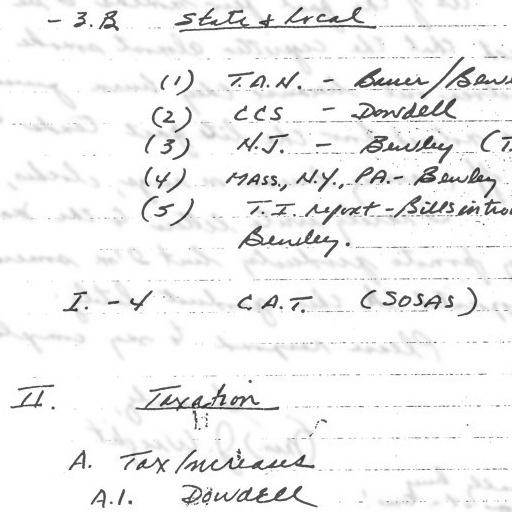 - 3.B State & Local
(1) T.A.N. - Bauer/Bewl
(2) CCS - Dowdell
(3) N.J. - Bewley (T
(4) MASS., N.Y., PA. - Bewley
(5) T.I. report - Bills intro
Bewley.
I. - 4 C.A.T. (SOSAS)
II. Taxation
A. Tax Increases
A.1. Dowdell